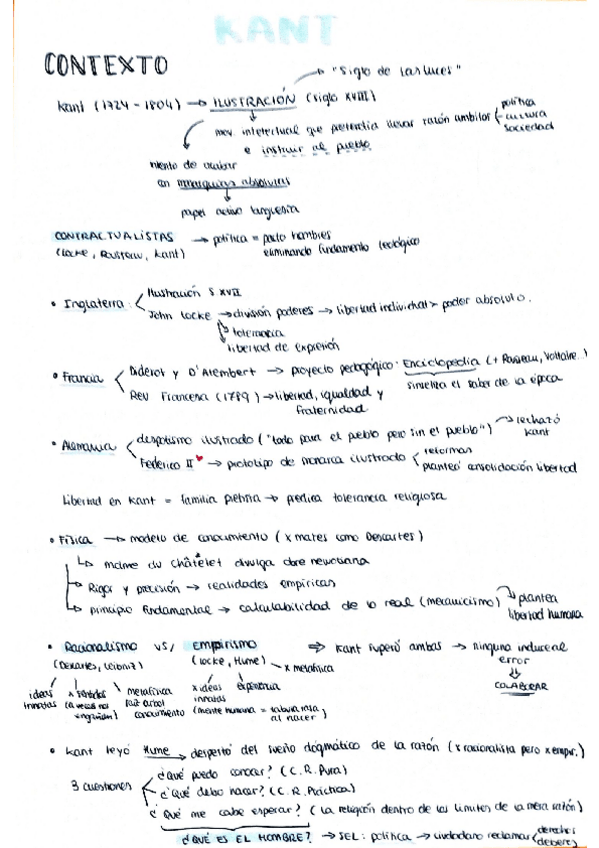 KANT
CONTEXTO
"Siglo de las luces"
Kant (1724 - 1804) → ILUSTRACIÓN (siglo XVIII)
mov. intelectual que pretendía llevar razón ámbitos política cultura sociedad
e instruir al pueblo
intento de acabar
con monarquías absolutas
papel activo burguesía
CONTRACTUALISTAS → política = pacto hombres
(Locke, Rousseau, Kant) eliminando fundamento teológico
• Inglaterra: Ilustración S XVII
John Locke → división poderes → libertad individual > poder absoluto.
tolerancia
libertad de expresión
• Francia Diderot y D'Alembert → proyecto pedagógico: Enciclopedia (+ Rousseau, Voltaire..)
sintetiza el saber de la época
Rev Francesa (1789) → libertad, igualdad y
fraternidad
• Alemania despotismo ilustrado ("todo para el pueblo pero sin el pueblo") → rechazó
Kant
Federico II → prototipo de monarca ilustrado reformas
planteó consolidación libertad
Libertad en Kant = familia pietista → predica tolerancia religiosa
• Física → modelo de conocimiento (x mates como Descartes)
→ madame du Châtelet divulga obra newtoniana
→ Rigor y precisión → realidades empíricas
→ principio fundamental → calculabilidad de lo real (mecanicismo) → plantea
libertad humana
• Racionalismo VS/ Empirismo ⇒ Kant superó ambas → ninguna induce al
error
(Descartes, Leibniz) (Locke, Hume) x metafísica
⇓
COLABORAR
ideas innatas x sentidos (a veces nos engañan) metafísica raíz árbol conocimiento x ideas innatas experiencia
(mente humana = tabula rasa
al nacer)
• Kant leyó Hume → despertó del sueño dogmático de la razón (x racionalista pero x empir.)
3 cuestiones ¿Qué puedo conocer? (C. R. Pura)
¿Qué debo hacer? (C. R. Práctica)
¿Qué me cabe esperar? (La religión dentro de los límites de la mera razón)
¿QUÉ ES EL HOMBRE? → SEL: política → ciudadano reclamar derechos
deberes